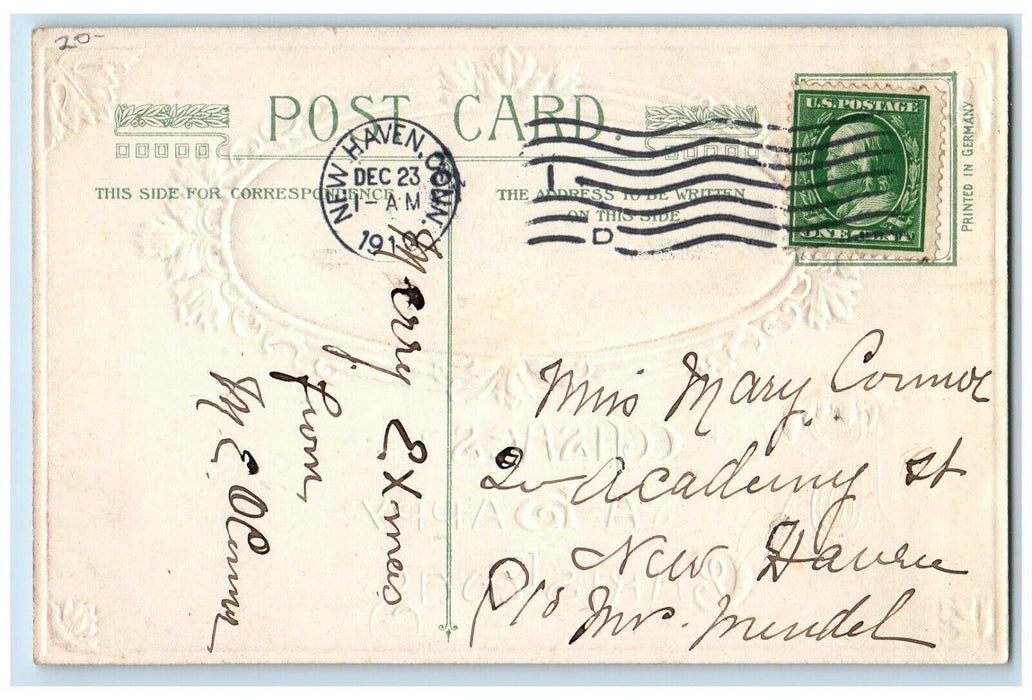 20-
POST CARD.
THIS SIDE FOR CORRESPONDENCE
THE ADDRESS TO BE WRITTEN
ON THIS SIDE
NEW HAVEN, CONN.
DEC 23
1-AM
191
1
D
U.S. POSTAGE
ONE CENT
PRINTED IN GERMANY
Merry Xmas
from
M E
Miss Mary Connor
20 Academy St
New Haven
c/o Mrs. Mendel